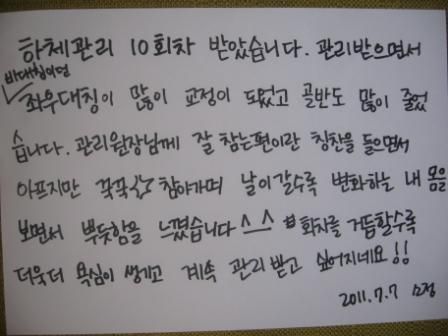 하체관리 10회차 받았습니다. 관리받으면서
비대칭이던
좌우대칭이 많이 교정이 되었고 골반도 많이 줄었
습니다. 관리원장님께 잘 참는편이란 칭찬을 들으면서
아프지만 꾹꾹 참아가며 날이갈수록 변화하는 내 몸을
보면서 뿌듯함을 느꼈습니다 ^_^ # 회차를 거듭할수록
더욱더 욕심이 생기고 계속 관리받고 싶어지네요!!
2011.7.7 소정